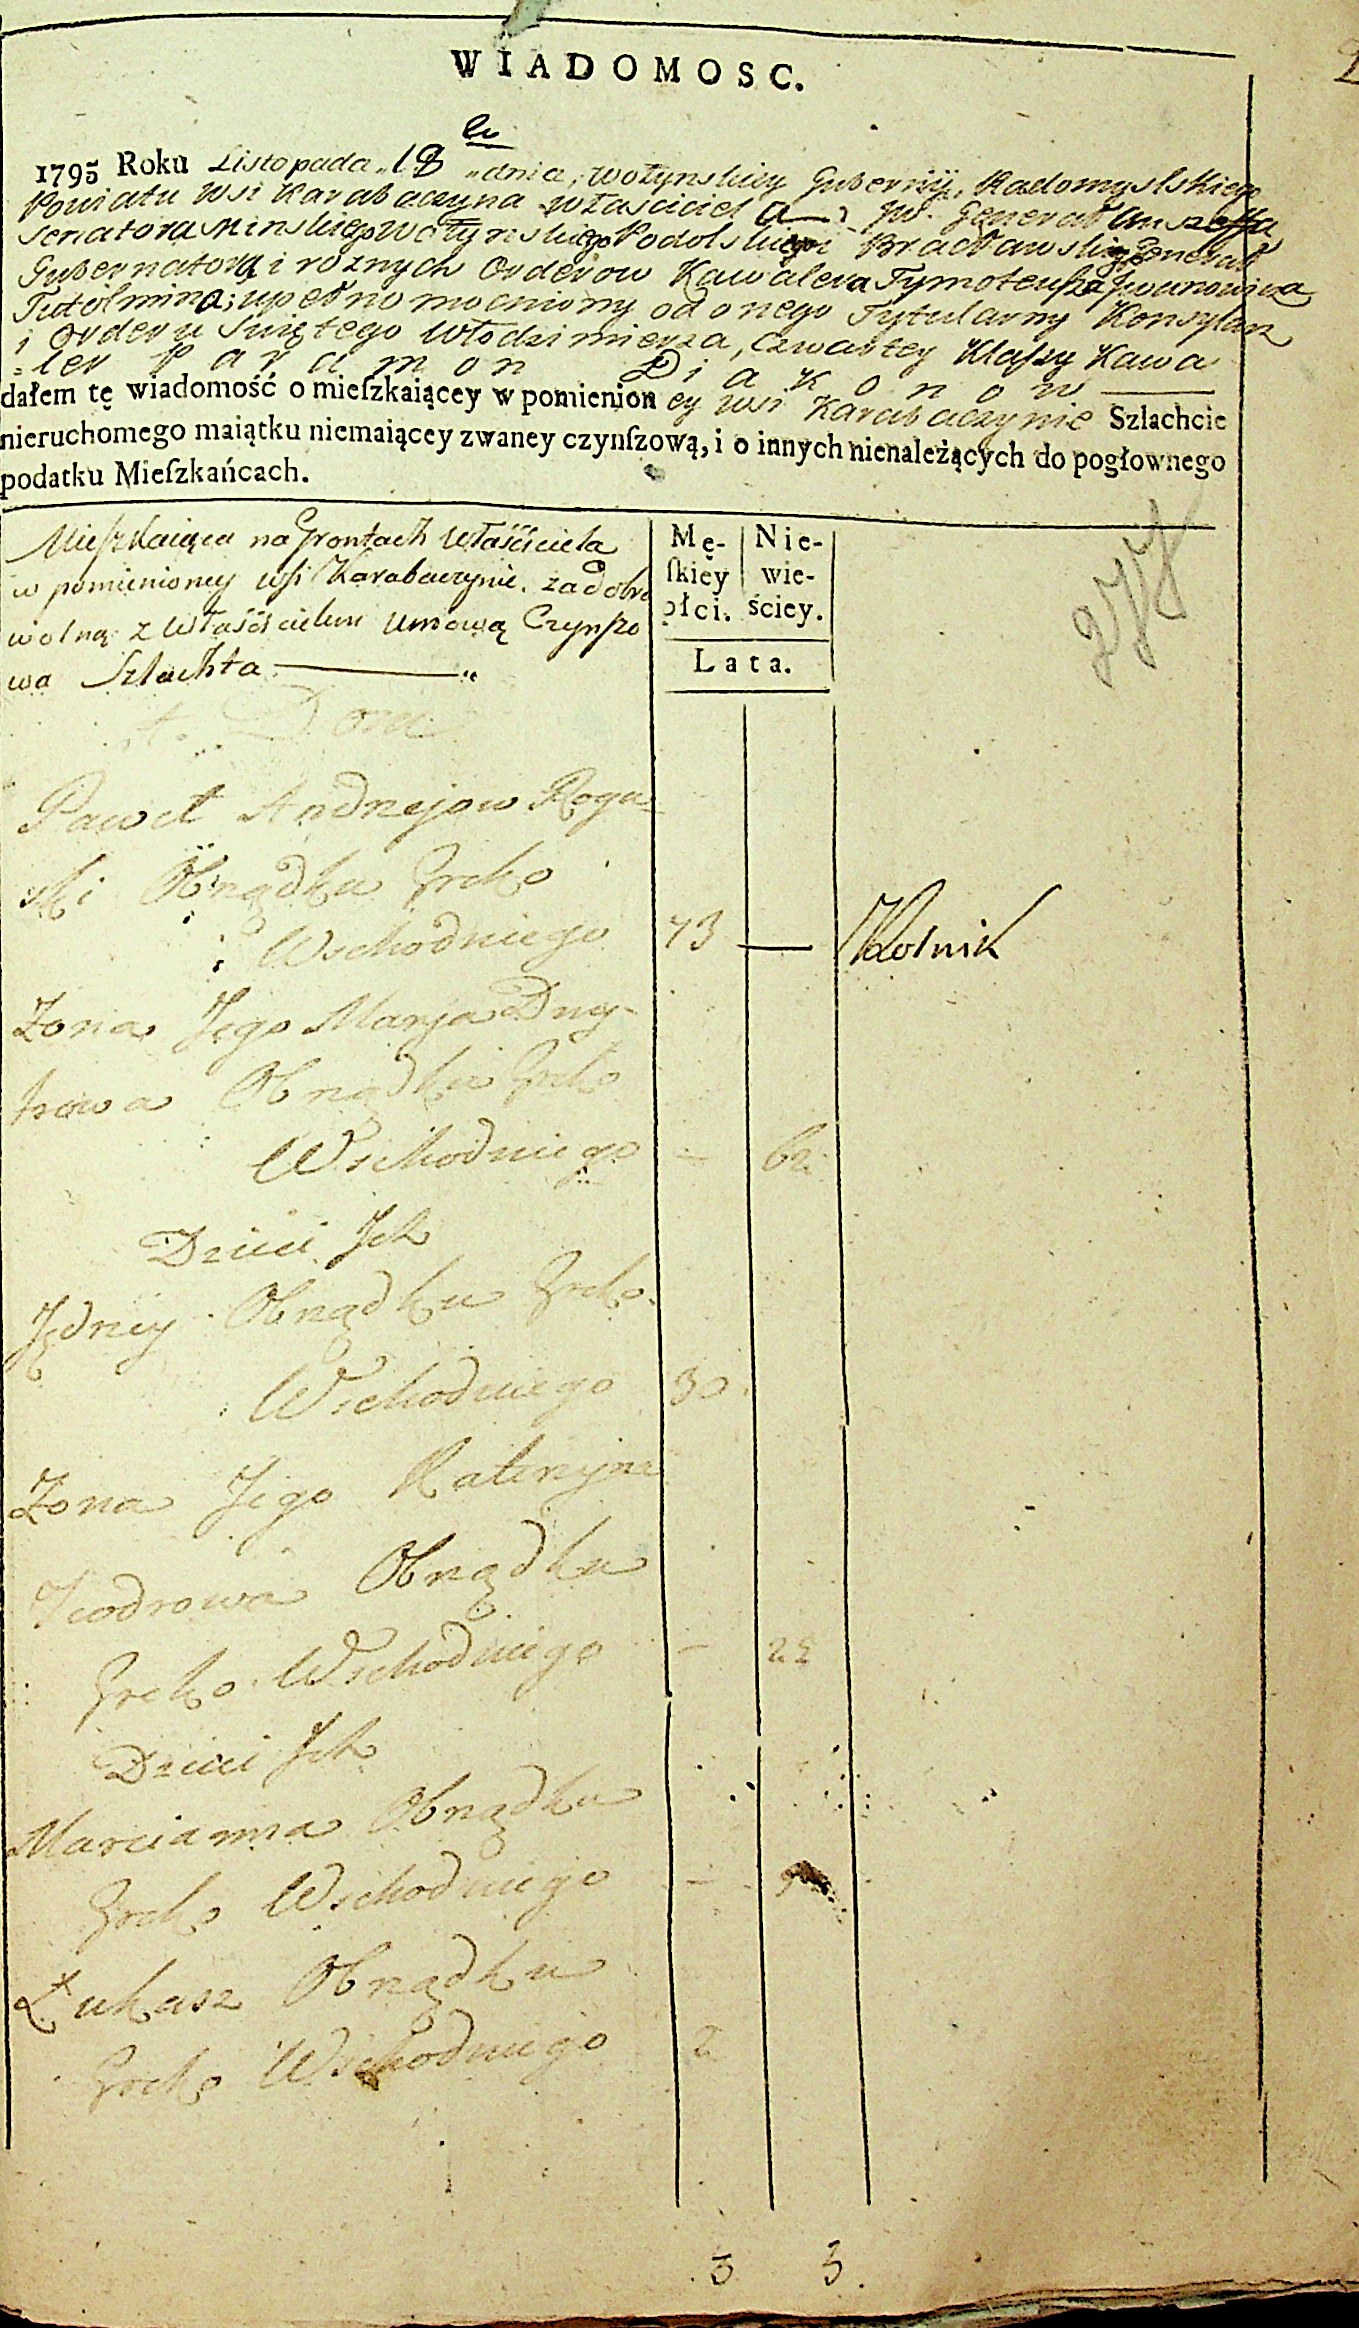 WIADOMOSC.
1795 Roku Listopada „18 „dnia, wołynskiey Gubernij, Radomyslskiego
Powiatu Wsi Karabaczyna własciciela JW. Generał
Senatora Minskiego Wołynskiego Podolskiego i Bracławskiego General
Gubernatora i roznych Orderow Kawalera Tymoteusza Jwanowicza
Tutolmina; upełnomocniony od onego Tytularny Konsylarz
i Orderu Swiętego Włodzimierza, czwartey Klassy Kawa
=ler Paramon Diakonow
dałem tę wiadomość o mieſzkaiącey w pomienioney wsi Karabaczynie Szlachcie
nieruchomego maiątku niemaiącey zwaney czynſzową, i o innych nienależących do pogłownego
podatku Mieſzkańcach.
Mieszkaiąca na Grontach Właściciela
w pomienioney wsi Karabaczynie. za dobro
wolną z Właścicielem umową Czynszo
wa Szlachta
Mę- Nie-
ſkiey wie-
płci. ściey.
Lata.
1. Dom
Paweł Andrzejow Rogu
ski Obrządku Greko
Wschodniego 73 — Rolnik
Zona Jego Marja Dmy-
trowa Obrządku Greko
Wschodniego - 62
Dzieci Jch
Jędrzey Obrządku Greko
Wschodniego 30
Zona Jego Kateryna
Teodrowa Obrządku
Greko Wschodniego - 22
Dzieci Jch
Marcianna Obrządku
Greko Wschodniego -
Łukasz Obrządku
Greko Wschodniego 2
3 3